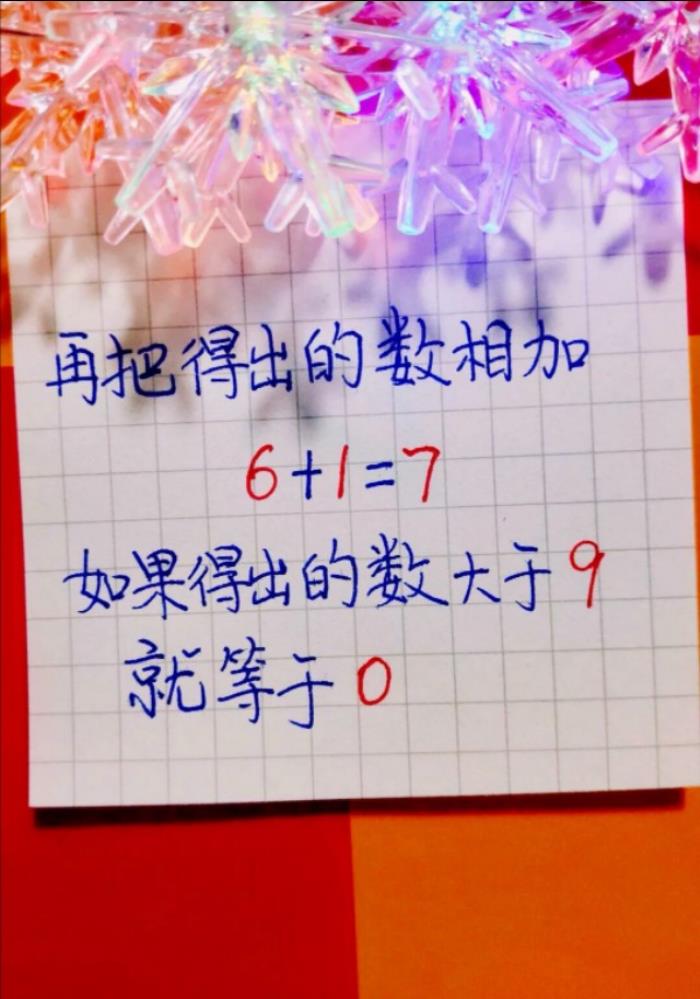 再把得出的数相加
6+1=7
如果得出的数大于9
就等于0